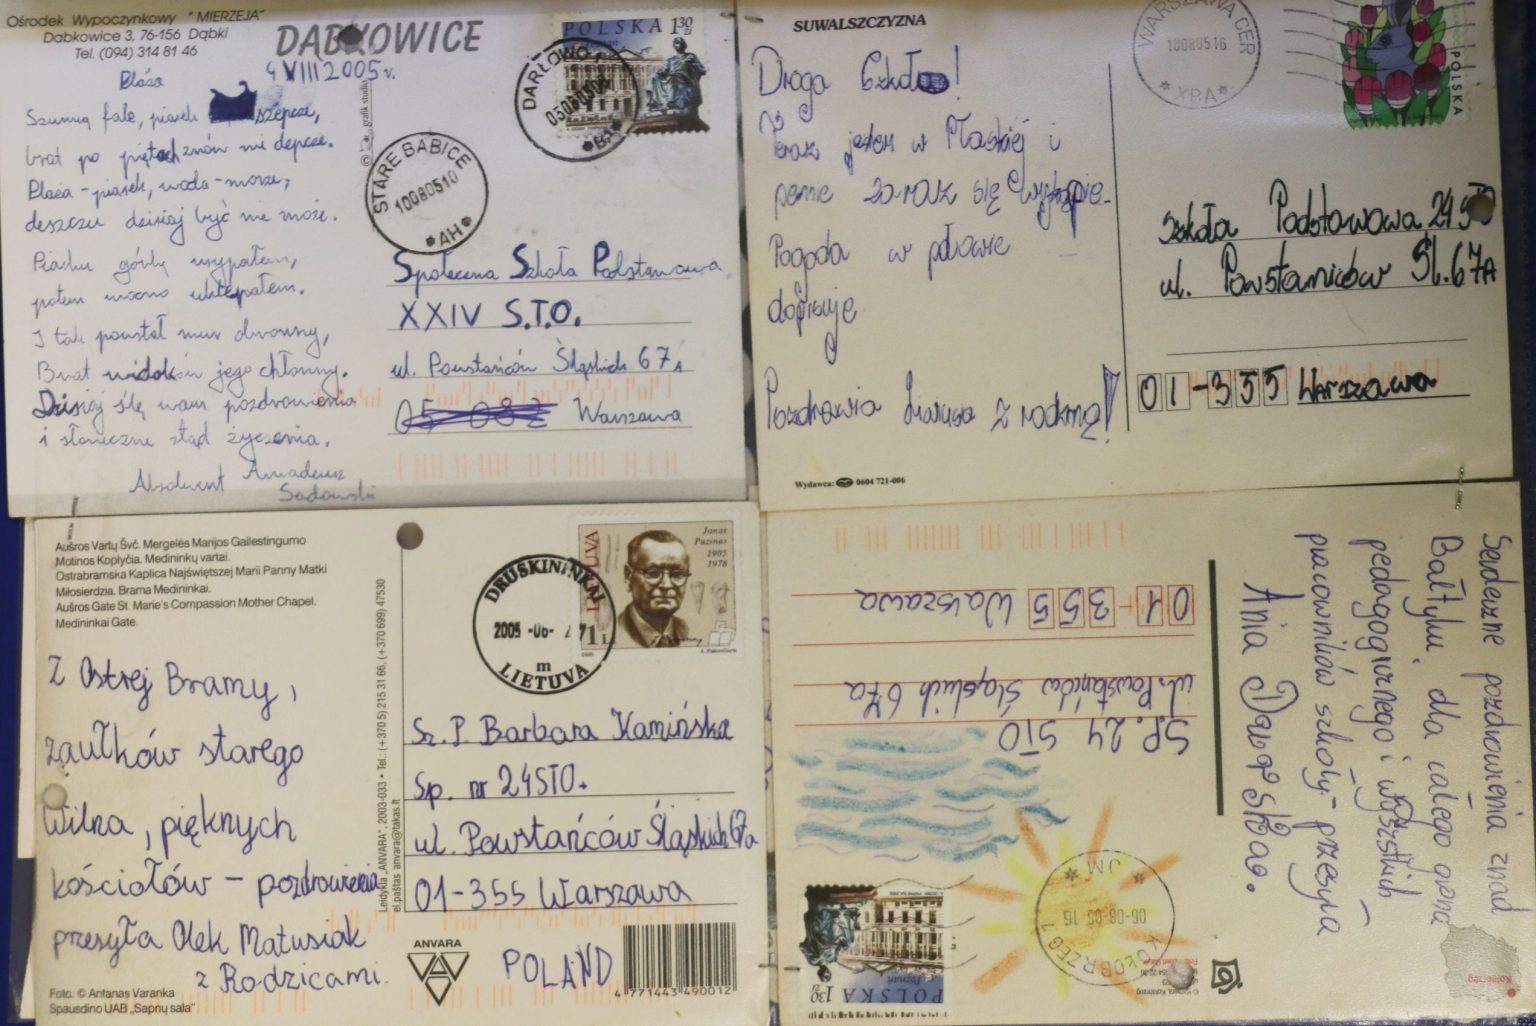 Ośrodek Wypoczynkowy "MIERZEJA"
Dąbkowice 3, 76-156 Dąbki
Tel. (094) 314 81 46
DĄBKOWICE
4 VIII 2005 r.
Plaża
Szumią fale, piasek szepcze,
brat po piętach znów nie depcze.
Plaża - piasek, woda - morze,
deszczu dzisiaj być nie może.
Piasku górkę usypałem,
potem mocno uklepałem.
I tak powstał mur obronny,
Brat widoków jego chłonny.
Dzisiaj ślę wam pozdrowienia
i słoneczne stąd życzenia.
Absolwent Amadeusz
Sadowski
grafik studio
POLSKA 1,30 zł
DARŁOWO 1
STARE BABICE
10080510
*AH*
Społeczna Szkoła Podstawowa
XXIV S.T.O.
ul. Powstańców Śląskich 67A
05-082 Warszawa
SUWALSZCZYZNA
Droga Szkoło!
Teraz jestem w Płaskiej i
pewnie zaraz się
Pogoda w połowie
dopisuje.
Pozdrawia z rodziną!
Wydawca: 0604 721-006
WARSZAWA CER
10080516
*XBA*
POLSKA
Szkoła Podstawowa 24 STO
ul. Powstańców Śl. 67A
01-355 Warszawa
Aušros Vartų Švč. Mergelės Marijos Gailestingumo
Motinos Koplyčia. Medininkų vartai.
Ostrabramska Kaplica Najświętszej Marii Panny Matki
Miłosierdzia. Brama Medininkai.
Aušros Gate St. Marie's Compassion Mother Chapel.
Medininkai Gate.
Z Ostrej Bramy,
zaułków starego
Wilna, pięknych
kościołów - pozdrowienia
przesyła Olek Matusiak
z Rodzicami.
Foto. © Antanas Varanka
Spausdino UAB „Sapnų sala“
Leidykla „ANVARA“, 2003-033 • Tel.: (+370 5) 215 31 66, (+370 699) 47530
el.paštas anvara@takas.lt
DRUSKININKAI
2005 -06-
m
LIETUVA
LIETUVA
Jonas
Puzinas
1905
1978
Sz. P. Barbara Kamińska
Sp. nr 24 STO.
ul. Powstańców Śląskich 67a
01-355 Warszawa
ANVARA
POLAND
4 771443 490012
Serdeczne pozdrowienia znad
Bałtyku, dla całego grona
pedagogicznego i wszystkich
pracowników szkoły - przesyła
SP. 24 STO
ul. Powstańców Śląskich 67a
01-355 Warszawa
KOŁOBRZEG 1
06-08-05 15
*JM*
POLSKA 1,30 zł
Kołobrzeg